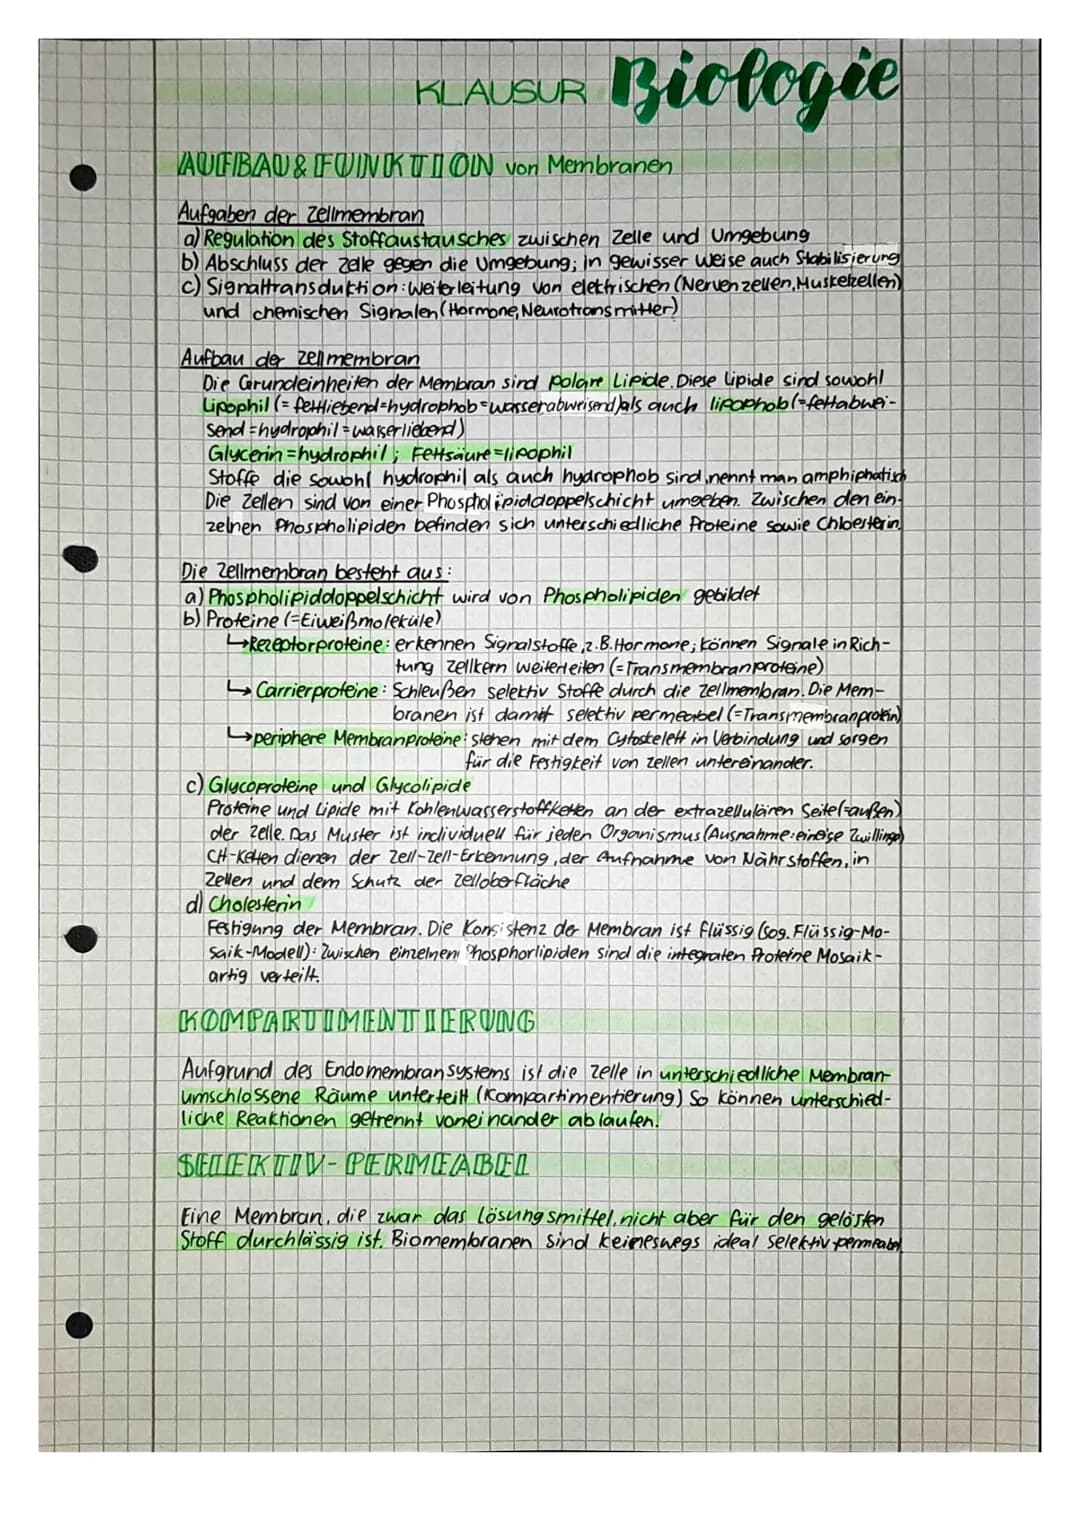 KLAUSUR Biologie
AUFBAU & FUNKTION von Membranen
Aufgaben der Zellmembran
a) Regulation des Stoffaustausches zwischen Zelle und Umgebung
b) Abschluss der Zelle gegen die Umgebung; in gewisser Weise auch Stabilisierung
c) Signaltransduktion: Weiterleitung von elektrischen (Nervenzellen, Muskelzellen)
und chemischen Signalen (Hormone, Neurotransmitter)
Aufbau der Zellmembran
Die Grundeinheiten der Membran sind polare Lipide. Diese Lipide sind sowohl
Lipophil (= fettliebend = hydrophob = wasserabweisend) als auch lipophob (= fettabwei-
send = hydrophil = wasserliebend)
Glycerin = hydrophil; Fettsäure = lipophil
Stoffe die sowohl hydrophil als auch hydrophob sind, nennt man amphiphatisch
Die Zellen sind von einer Phospholipiddoppelschicht umgeben. Zwischen den ein-
zelnen Phospholipiden befinden sich unterschiedliche Proteine sowie Chloesterin.
Die Zellmembran besteht aus:
a) Phospholipiddoppelschicht wird von Phospholipiden gebildet
b) Proteine (= Eiweißmoleküle)
↳ Rezeptorproteine: erkennen Signalstoffe, z.B. Hormone; können Signale in Rich-
tung Zellkern weiterleiten (= Transmembranproteine)
↳ Carrierproteine: Schleußen selektiv Stoffe durch die Zellmembran. Die Mem-
branen ist damit selektiv permeabel (= Transmembranprotein)
↳ periphere Membranproteine: stehen mit dem Cytoskelett in Verbindung und sorgen
für die Festigkeit von Zellen untereinander.
c) Glycoproteine und Glycolipide
Proteine und Lipide mit Kohlenwasserstoffketten an der extrazellulären Seite (= außen)
der Zelle. Das Muster ist individuell für jeden Organismus (Ausnahme: eineiige Zwillinge)
CH-Ketten dienen der Zell-Zell-Erkennung, der Aufnahme von Nährstoffen, in
Zellen und dem Schutz der Zelloberfläche
d) Cholesterin
Festigung der Membran. Die Konsistenz der Membran ist flüssig (sog. Flüssig-Mo-
saik-Modell): Zwischen einzelnen Phosphorlipiden sind die integralen Proteine Mosaik-
artig verteilt.
KOMPARTIMENTIERUNG
Aufgrund des Endomembransystems ist die Zelle in unterschiedliche Membran-
umschlossene Räume unterteilt (Kompartimentierung) So können unterschied-
liche Reaktionen getrennt voneinander ablaufen.
SELEKTIV-PERMEABEL
Eine Membran, die zwar das Lösungsmittel, nicht aber für den gelösten
Stoff durchlässig ist. Biomembranen sind keineswegs ideal selektiv permeabel